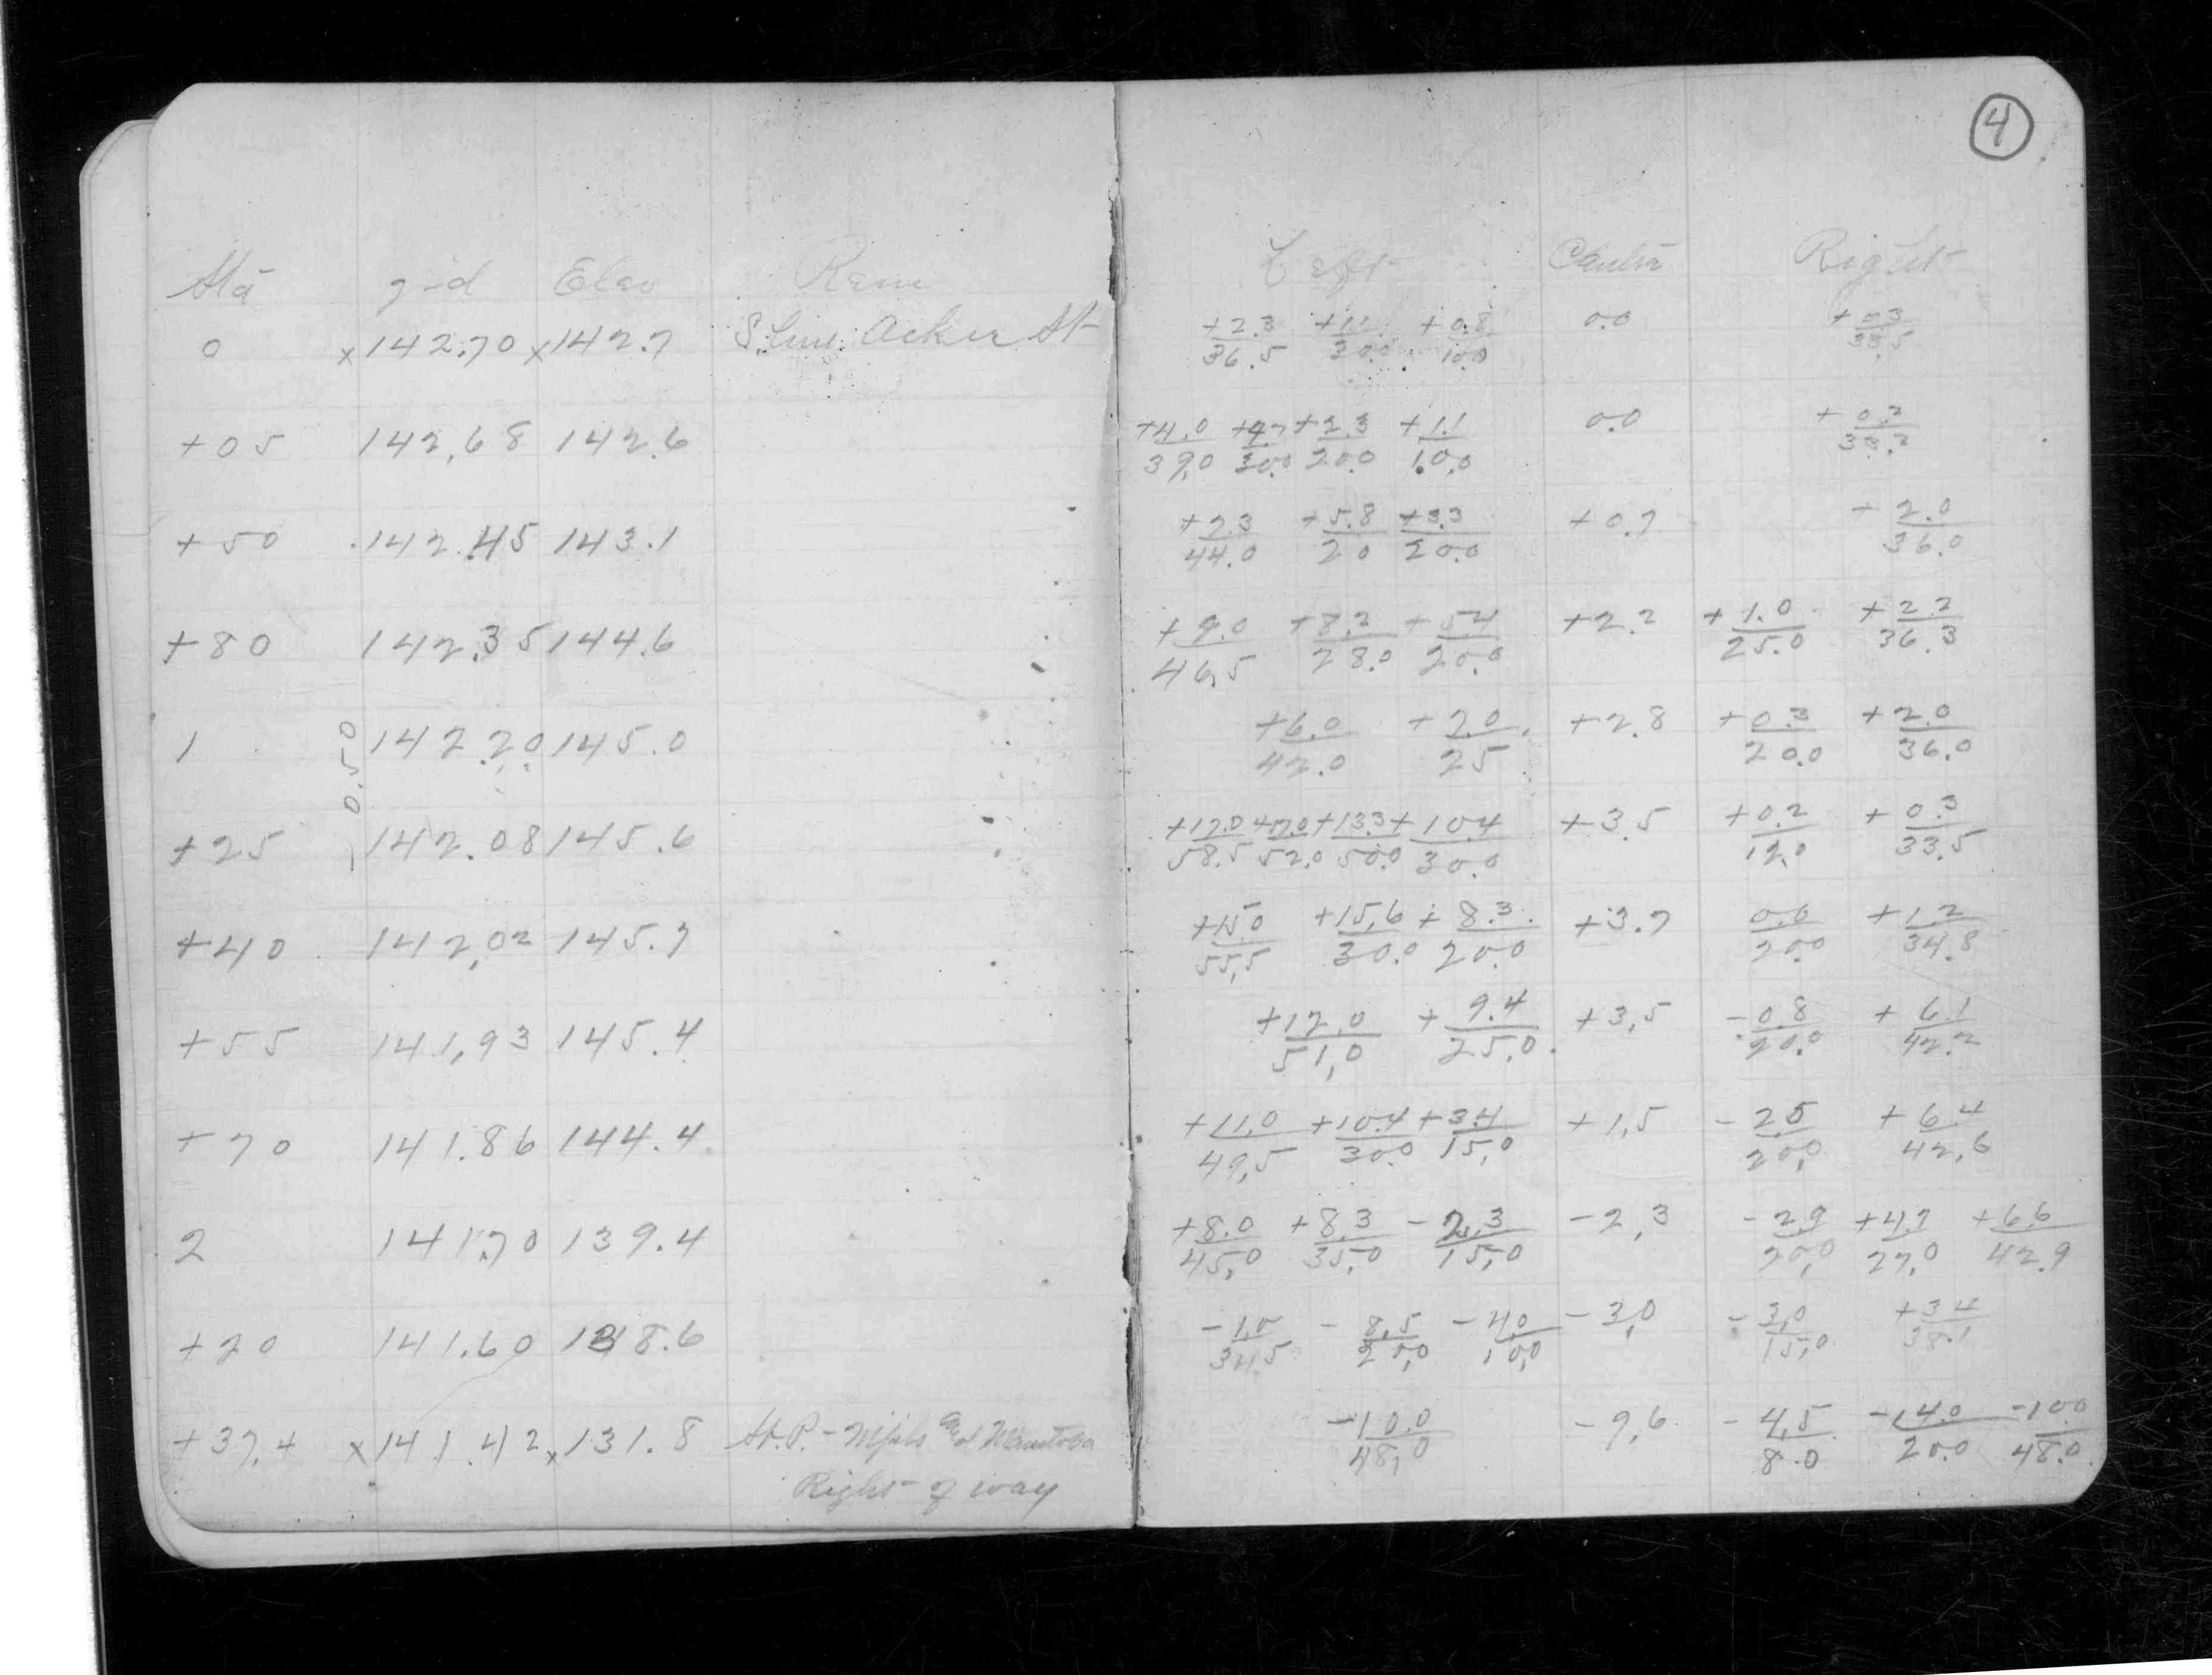 4
Sta grd Elev Rem Left Center Right
0 x142.70 x142.7 S. Line Acker St +2.3/36.5 +1.1/30.0 +0.8/10.0 0.0 +0.3/33.5
+05 142.68 142.6 +4.0/39.0 +2.3/20.0 +1.1/10.0 0.0 +0.2/33.2
+50 142.45 143.1 +7.3/44.0 +5.8/20 +3.3/20.0 +0.7 +2.0/36.0
+80 142.35 144.6 +9.0/46.5 +8.2/28.0 +5.4/20.0 +2.2 +1.0/25.0 +2.2/36.3
1 142.20 145.0 +6.0/42.0 +7.0/25 +2.8 +0.3/20.0 +2.0/36.0
0.50
+25 142.08 145.6 +17.0/58.5 +17.0/52.0 +13.3/50.0 +10.4/30.0 +3.5 +0.2/12.0 +0.3/33.5
+40 142.02 145.7 +15.0/55.5 +15.6/30.0 +8.3/20.0 +3.7 0.6/20.0 +1.2/34.8
+55 141.93 145.4 +12.0/51.0 +9.4/25.0 +3.5 -0.8/20.0 +6.1/42.2
+70 141.86 144.4 +11.0/49.5 +10.4/30.0 +3.4/15.0 +1.5 -2.5/20.0 +6.4/42.6
2 141.70 139.4 +8.0/45.0 +8.3/35.0 -2.3/15.0 -2.3 -2.9/20.0 +4.7/27.0 +6.6/42.9
+20 141.60 138.6 -1.0/34.5 -8.5/20.0 -4.0/10.0 -3.0 -3.0/15.0 +3.4/38.1
+37.4 x141.42 x131.8 St. P. - Mpls and Manitoba -10.0/48.0 -9.6 -4.5/8.0 -14.0/20.0 -10.0/48.0
Right of way